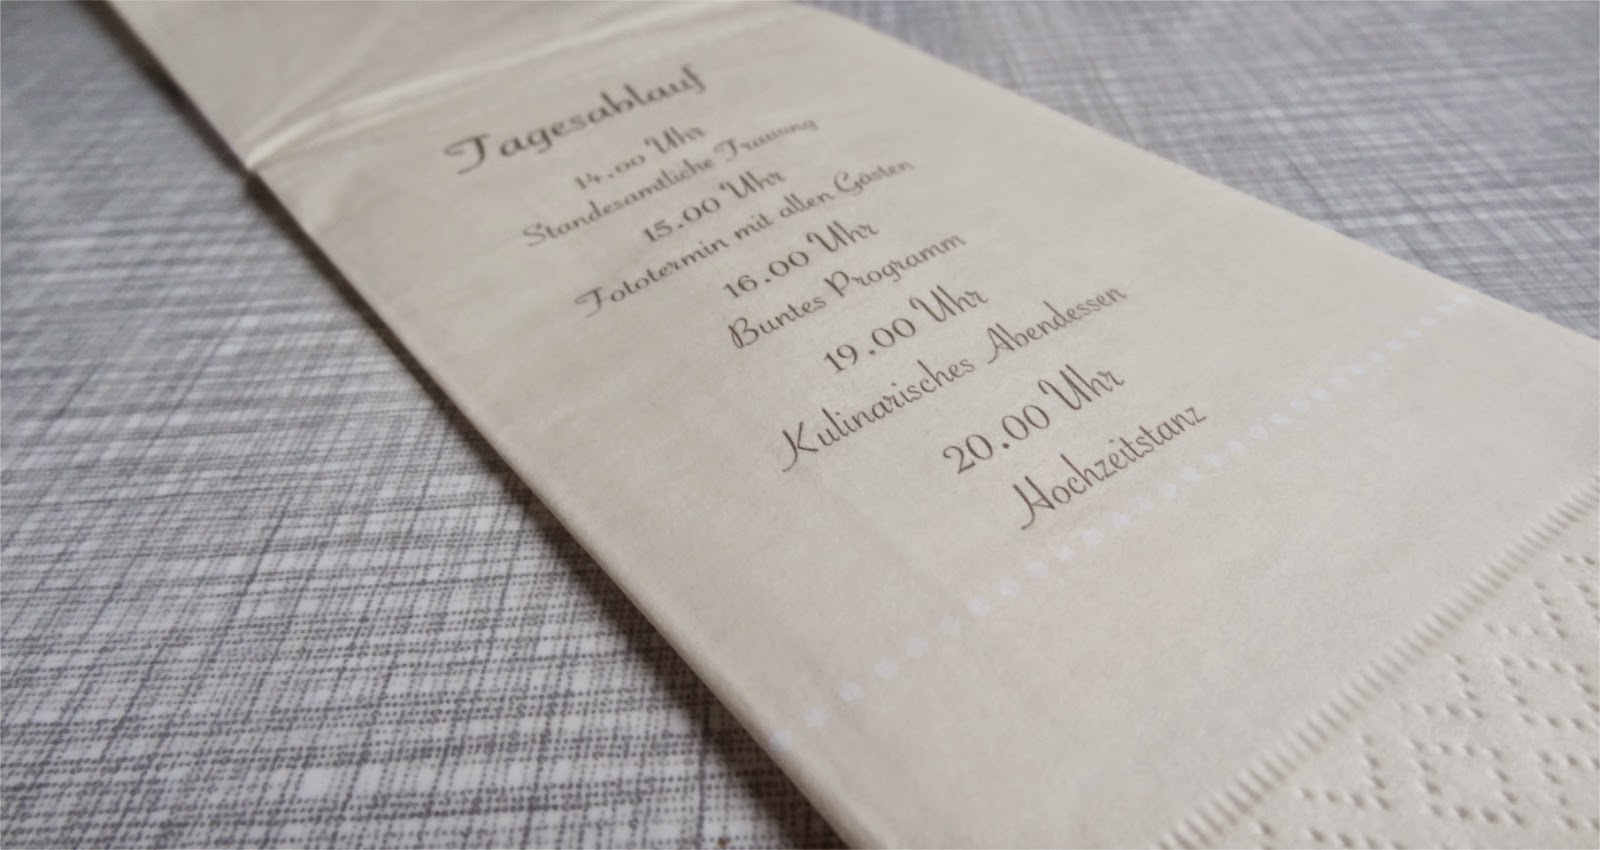 Tagesablauf
14.00 Uhr
Standesamtliche Trauung
15.00 Uhr
Fototermin mit allen Gästen
16.00 Uhr
Buntes Programm
19.00 Uhr
Kulinarisches Abendessen
20.00 Uhr
Hochzeitstanz